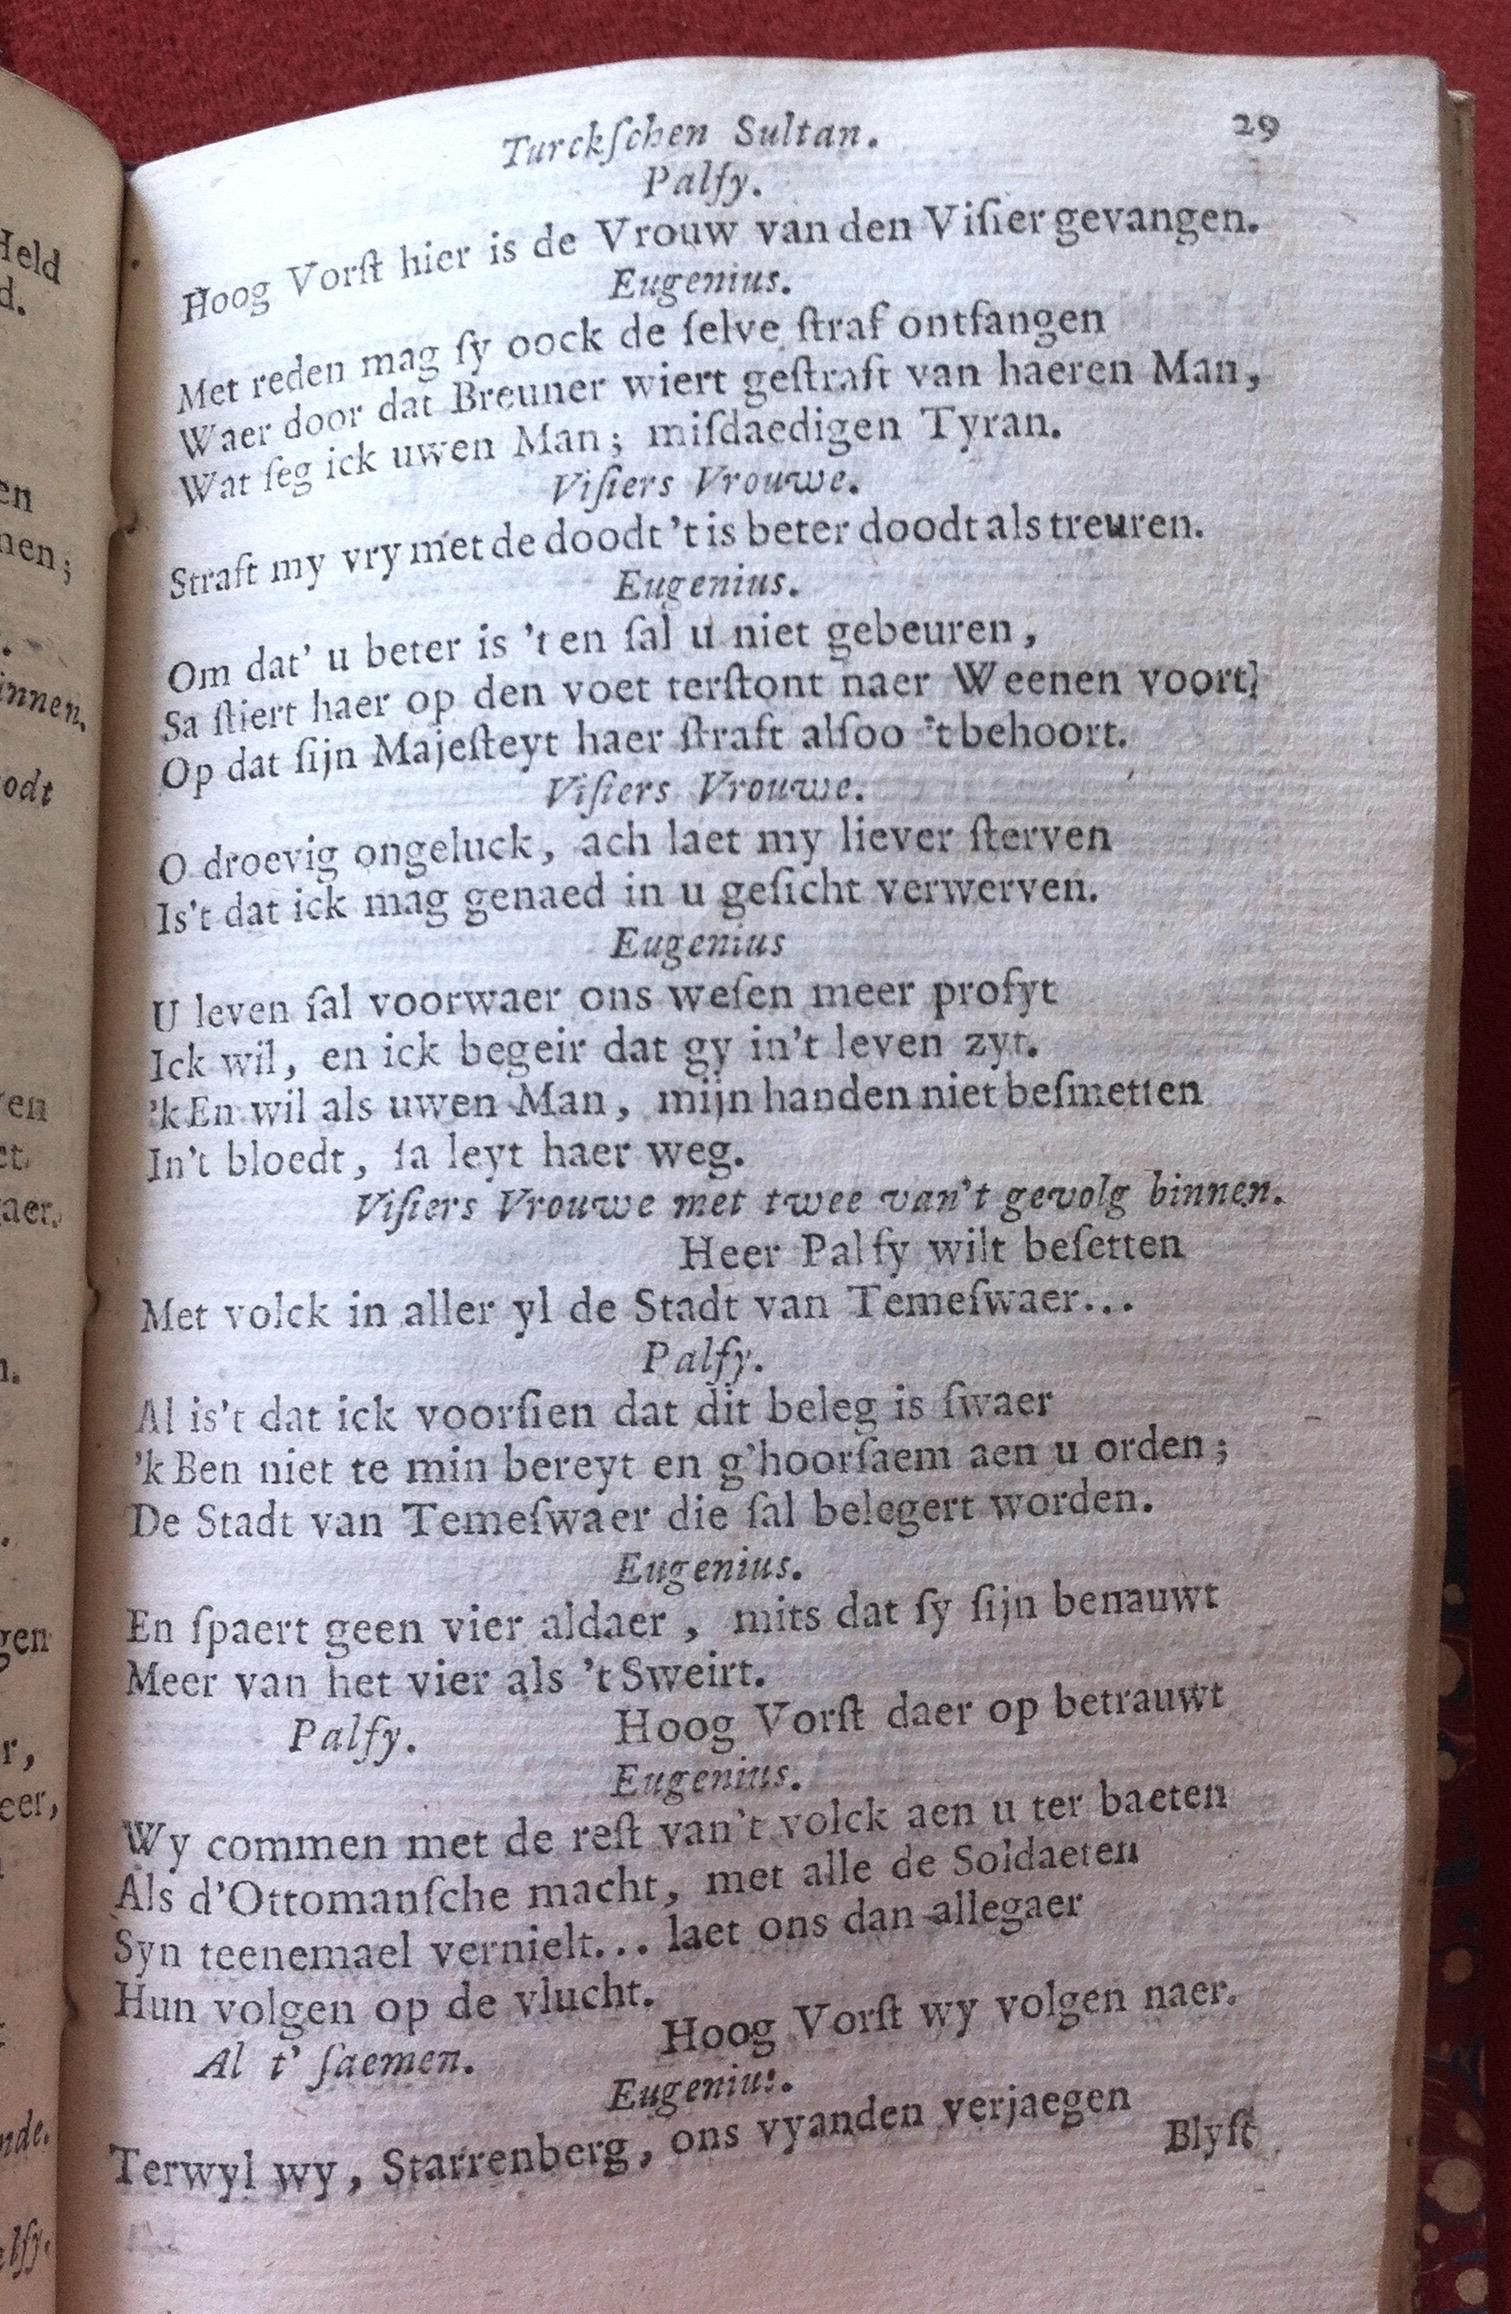 Turckſchen Sultan. 29
Palfy.
Hoog Vorſt hier is de Vrouw van den Viſier gevangen.
Eugenius.
Met reden mag ſy oock de ſelve ſtraf ontfangen
Waer door dat Breuner wiert geſtraft van haeren Man,
Wat ſeg ick uwen Man; miſdaedigen Tyran.
Viſiers Vrouwe.
Straft my vry met de doodt 't is beter doodt als treuren.
Eugenius.
Om dat' u beter is 't en ſal u niet gebeuren,
Sa ſtiert haer op den voet terſtont naer Weenen voort,
Op dat ſijn Majeſteyt haer ſtraft alſoo 't behoort.
Viſiers Vrouwe.
O droevig ongeluck, ach laet my liever ſterven
Is't dat ick mag genaed in u geſicht verwerven.
Eugenius
U leven ſal voorwaer ons weſen meer profyt
Ick wil, en ick begeir dat gy in't leven zyt.
'k En wil als uwen Man, mijn handen niet beſmetten
In't bloedt, ſa leyt haer weg.
Viſiers Vrouwe met twee van't gevolg binnen.
Heer Palfy wilt beſetten
Met volck in aller yl de Stadt van Temeſwaer...
Palfy.
Al is't dat ick voorſien dat dit beleg is ſwaer
'k Ben niet te min bereyt en g'hoorſaem aen u orden;
De Stadt van Temeſwaer die ſal belegert worden.
Eugenius.
En ſpaert geen vier aldaer, mits dat ſy ſijn benauwt
Meer van het vier als 't Sweirt.
Palfy. Hoog Vorſt daer op betrauwt
Eugenius.
Wy commen met de reſt van't volck aen u ter baeten
Als d'Ottomanſche macht, met alle de Soldaeten
Syn teenemael vernielt... laet ons dan allegaer
Hun volgen op de vlucht.
Al t' ſaemen. Hoog Vorſt wy volgen naer.
Eugenius.
Terwyl wy, Starrenberg, ons vyanden verjaegen
Blyft